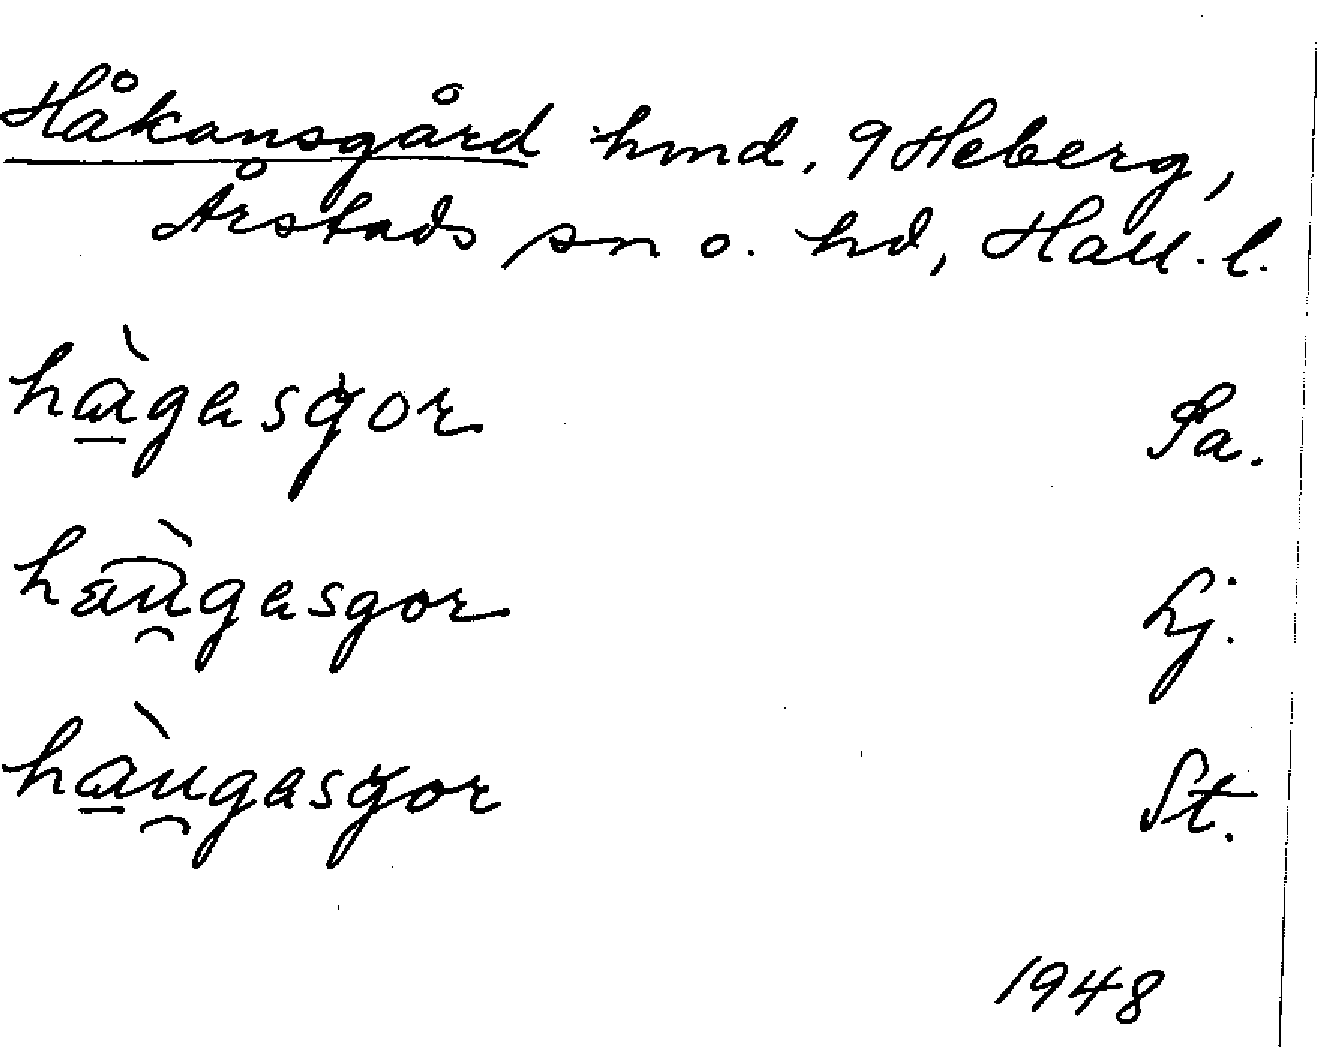 Håkansgård hmd. 9 Heberg,
Årstads sn o. hd, Hall. l.
hàgasgor Sa.
haùgasgor Lj.
hàugasgor St.
1948